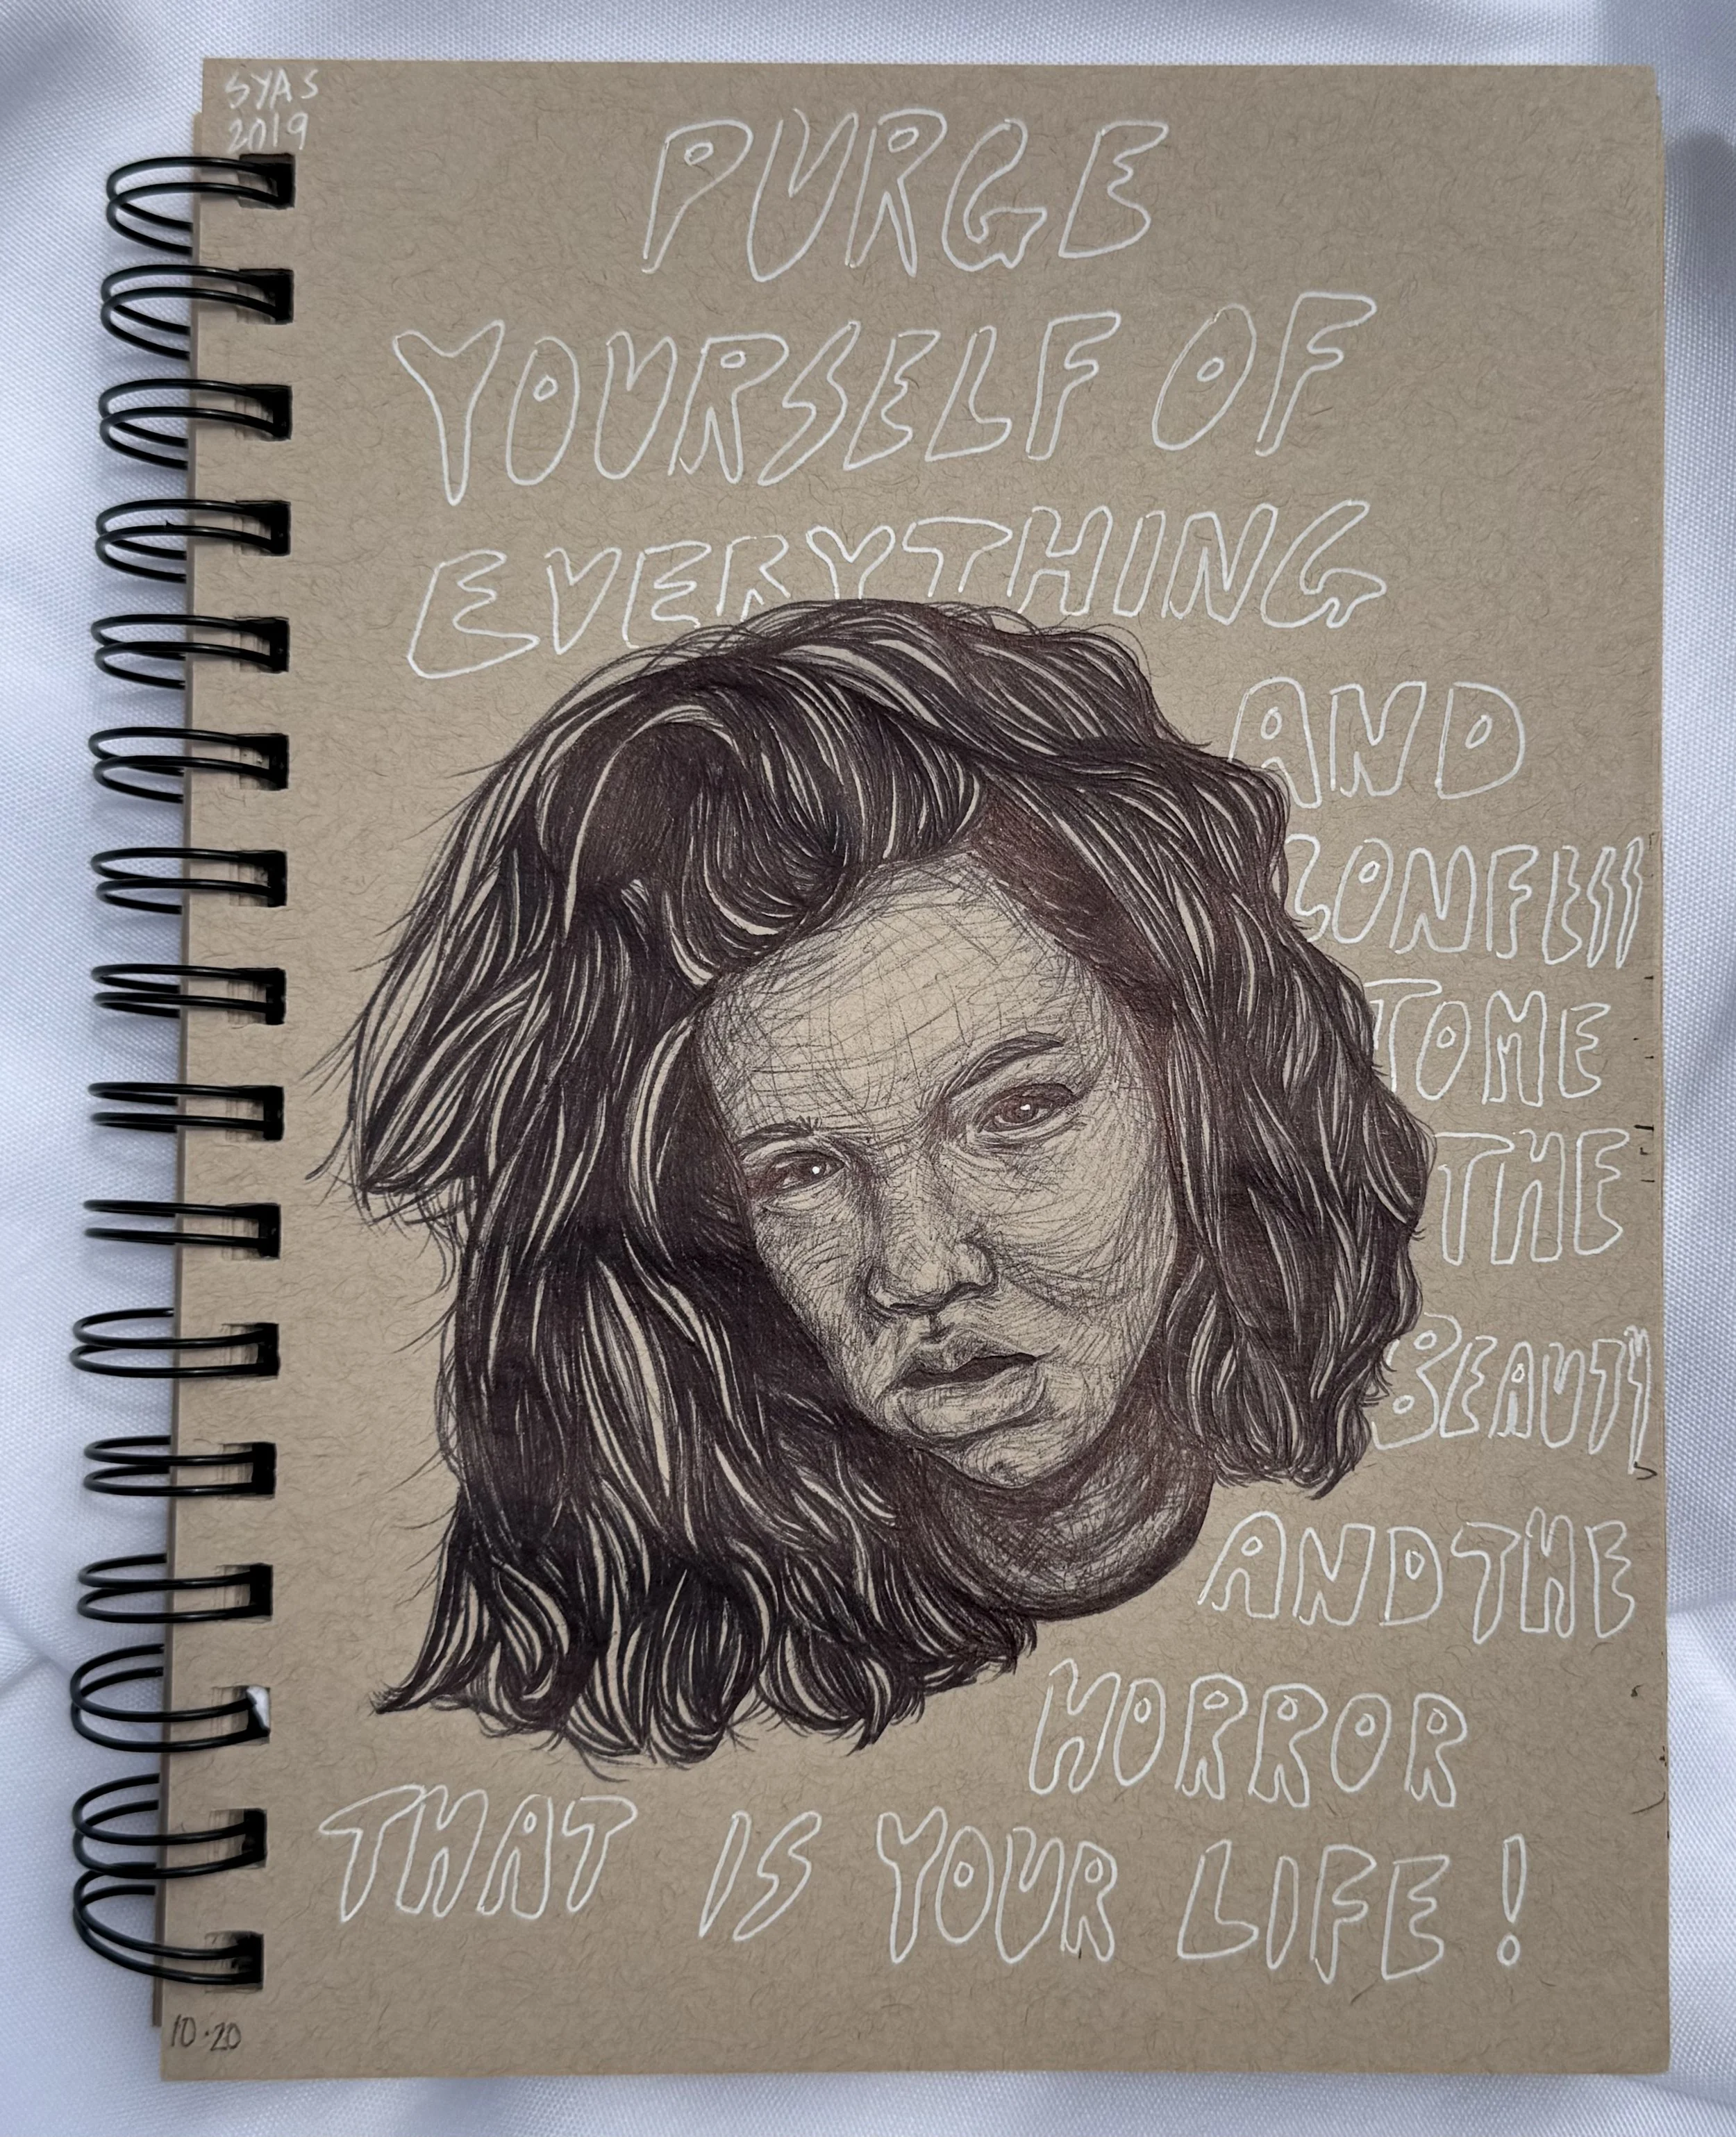 SYAS
2019
PURGE
YOURSELF OF
EVERYTHING
AND
CONFESS
TO ME
THE
BEAUTY
AND THE
HORROR
THAT IS YOUR LIFE!
10.20